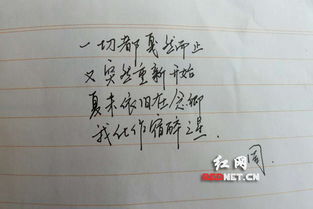 一切都戛然而止
又突然重新开始
夏末依旧在念卿
我化作宿醉之星.
红网
REDNET.CN